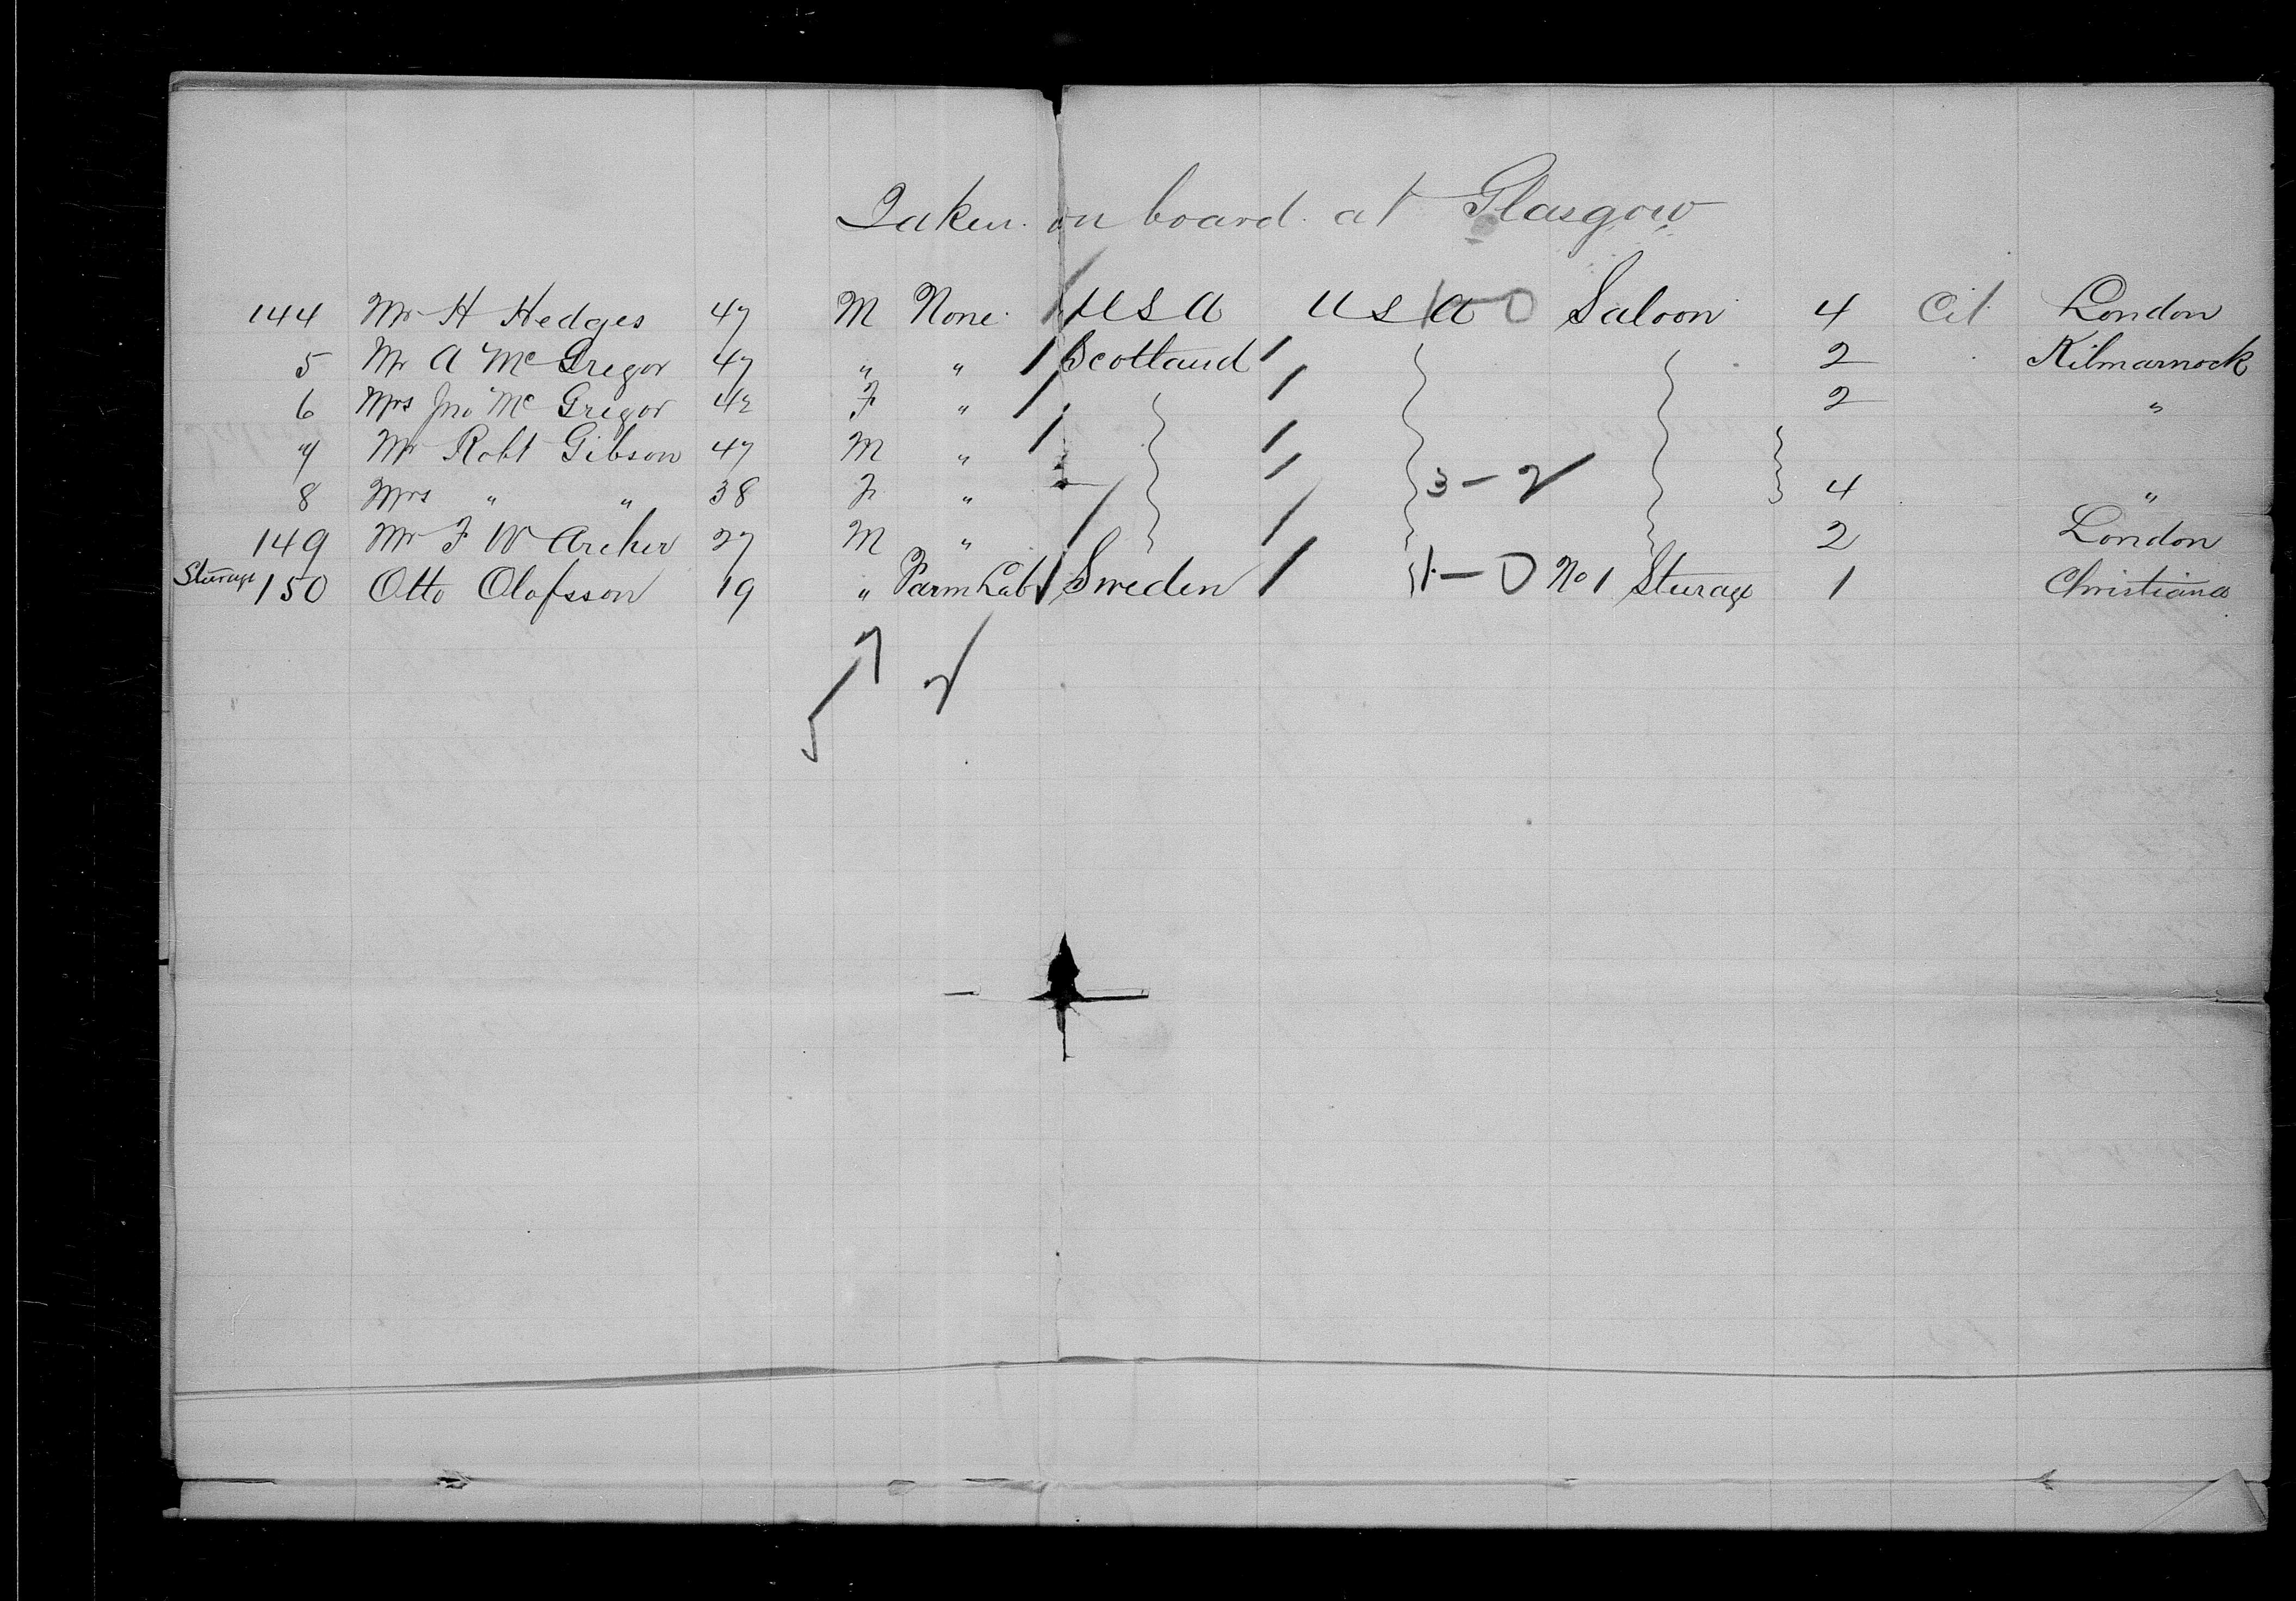 Taken on board at Glasgow
144 Mr H Hedges 47 M None / U S A U S A 1-0 Saloon 4 Cit London
5 Mr A McGregor 47 " " / Scotland / 2 Kilmarnock
6 Mrs Jno McGregor 42 F " / / 2 "
7 Mr Robt Gibson 47 M " / /
8 Mrs " " 38 F " / 3-2 4 "
149 Mr F W Archer 27 M " / / 2 London
Steerage 150 Otto Olofsson 19 " Farm Lab / Sweden / 1-0 No 1 Steerage 1 Christiana
5/7 2/